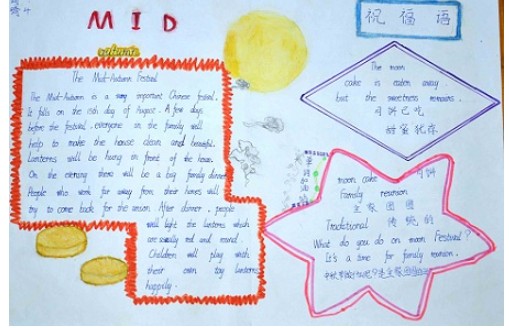 MID
autumn
祝福语
The Mid-Autumn Festival
The Mid-Autumn is a very important Chinese festival.
It falls on the 15th day of August. A few days
before the festival, everyone in the family will
help to make the house clean and beautiful.
Lanterns will be hung in front of the house.
On the evening there will be a big family dinner.
People who work far away from their homes will
try to come back for the union. After dinner, people
will light the lanterns which
are usually red and round.
Children will play with
their own toy lanterns
happily.
The moon
cake is eaten away
but the sweetness remains.
月饼已吃
甜蜜犹存
moon cake 月饼
Family reunion
全家团圆
Traditional 传统的
What do you do on moon Festival?
It's a time for family reunion.